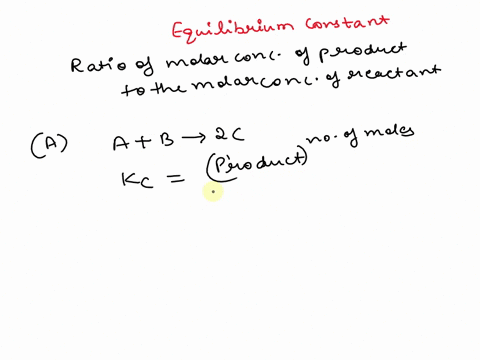 Equilibrium Constant
Ratio of molar conc. of product
to the molar conc. of reactant
(A) A + B → 2C
Kc = (Product)^no. of moles